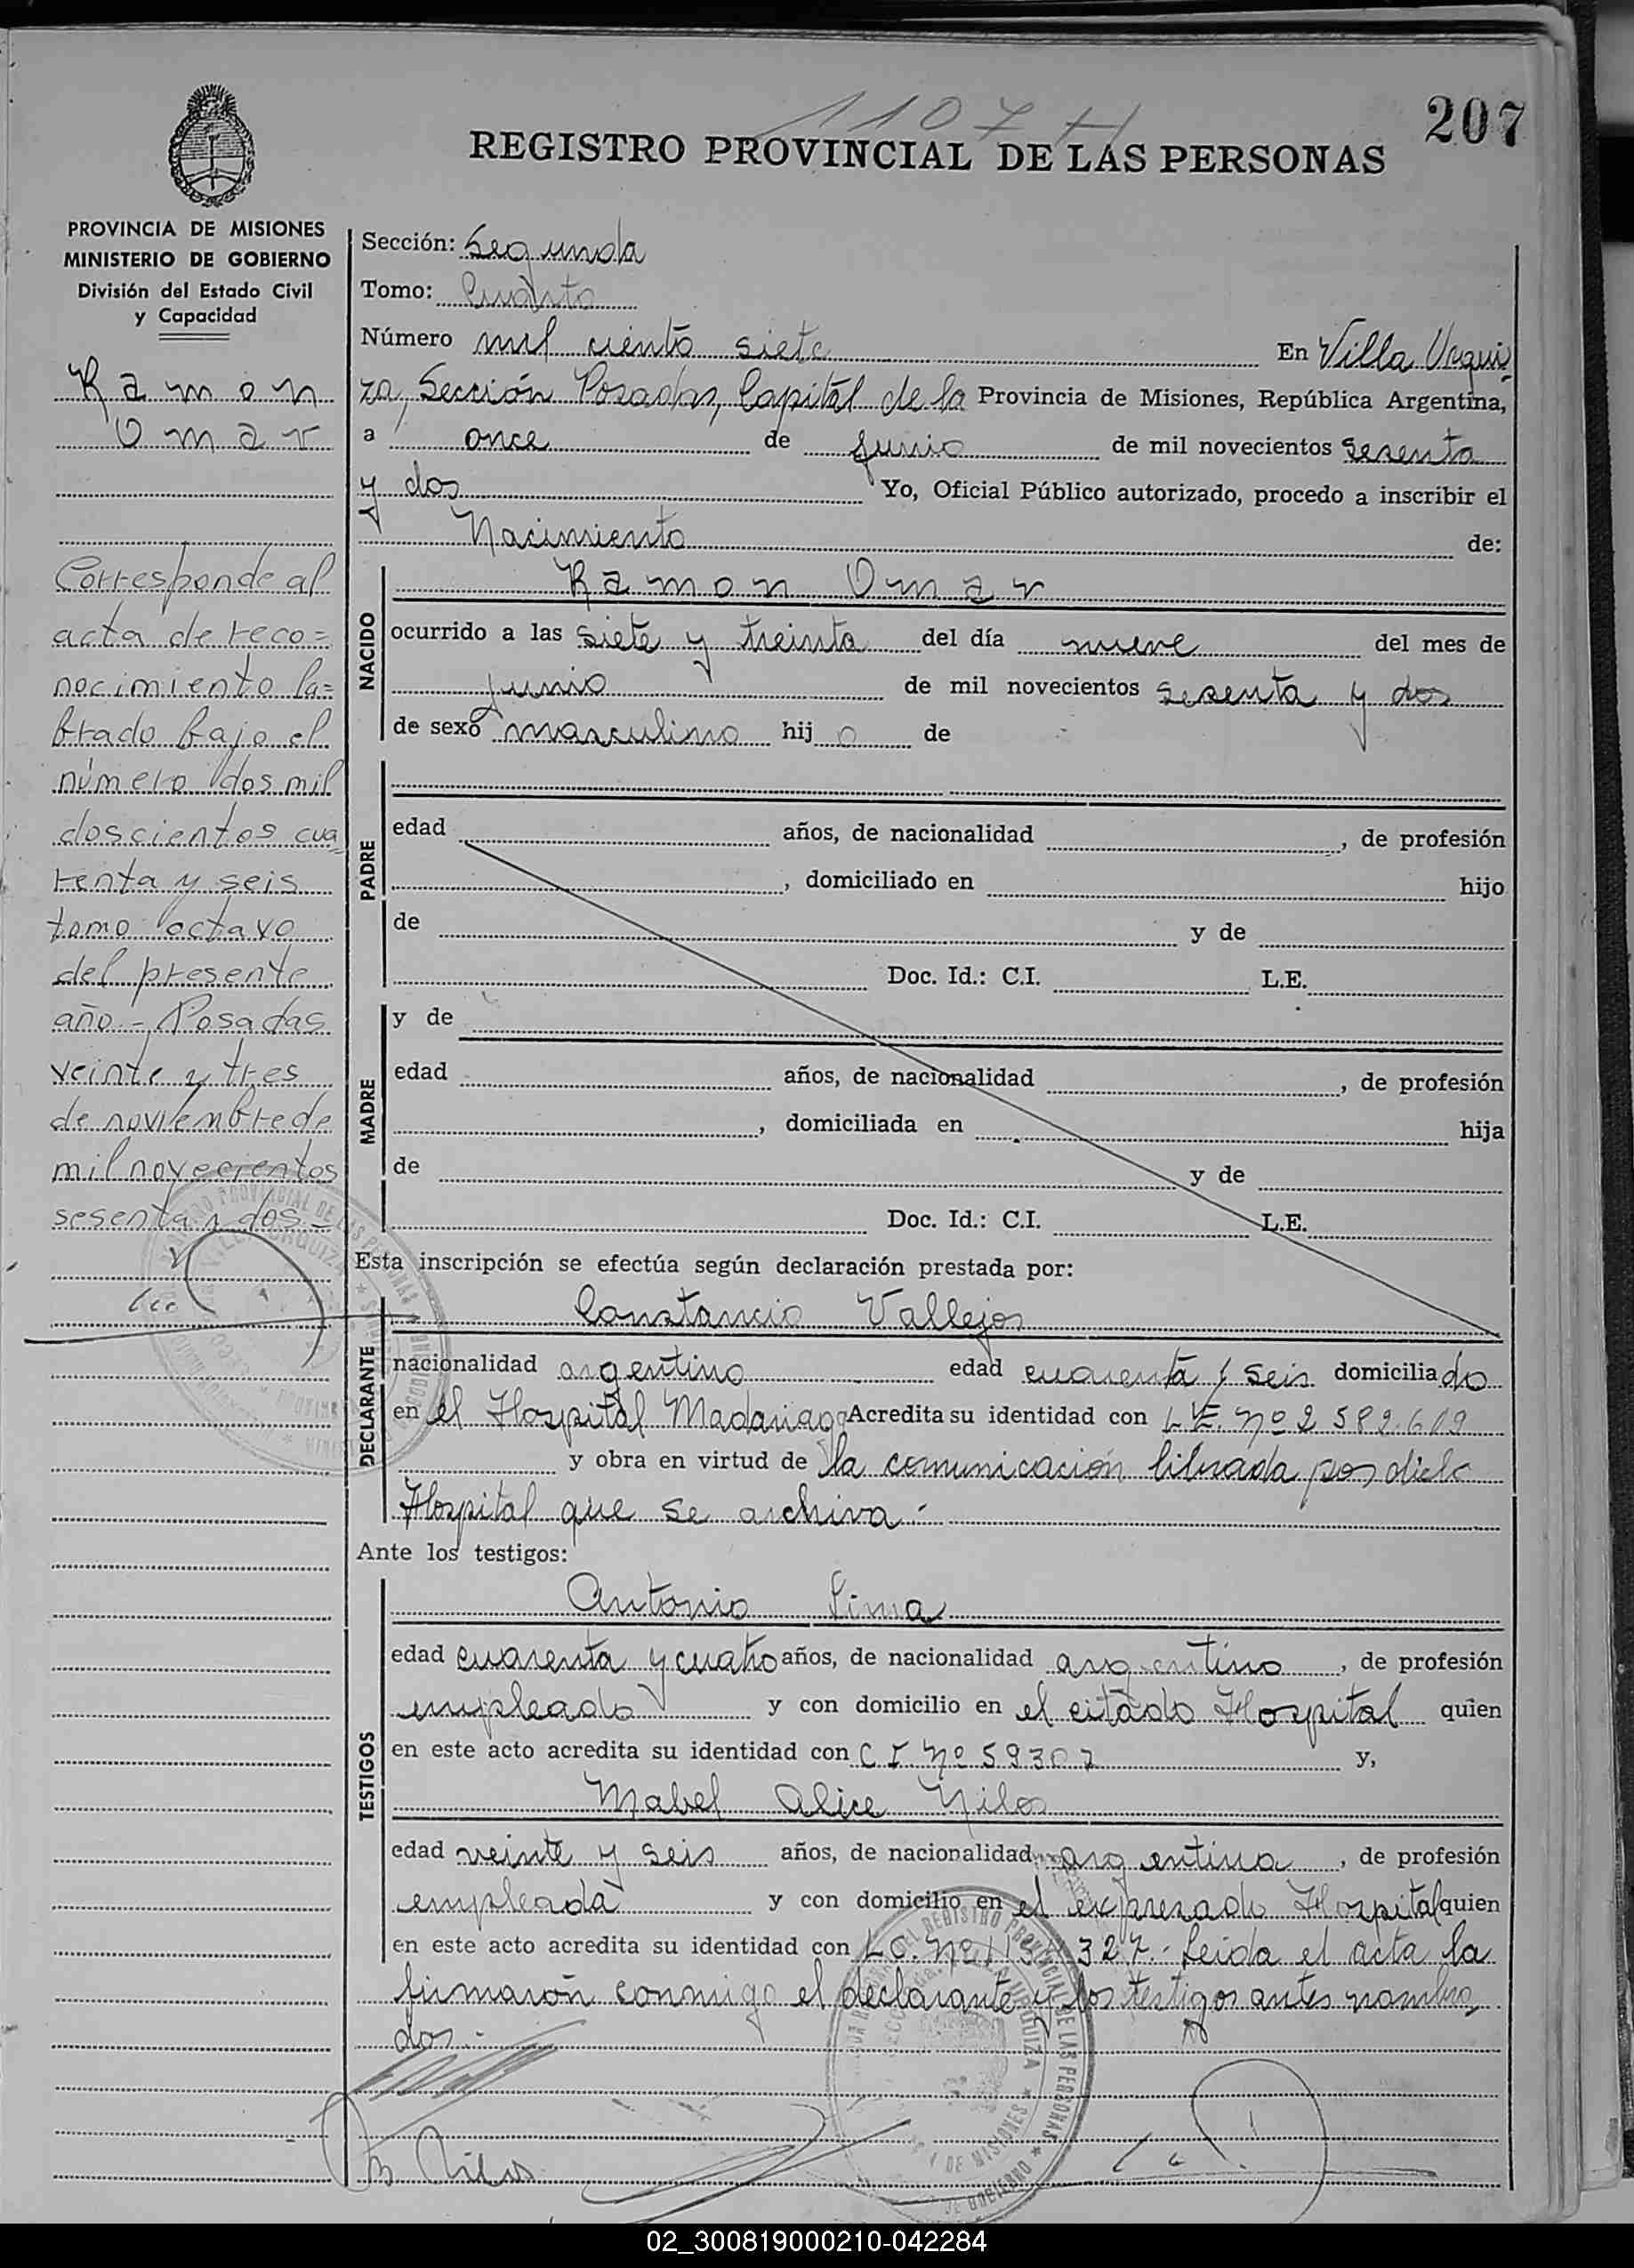 1107 H
207
REGISTRO PROVINCIAL DE LAS PERSONAS
PROVINCIA DE MISIONES
MINISTERIO DE GOBIERNO
División del Estado Civil
y Capacidad
Ramon
Omar
Corresponde al
acta de reco=
nocimiento la=
brado bajo el
número dos mil
doscientos cua=
renta y seis
tomo octavo
del presente
año - Posadas
veinte y tres
de noviembre de
mil novecientos
sesenta y dos -
Sección: Segunda
Tomo: Cuarto
Número mil ciento siete En Villa Urqui
za, Sección Posadas, Capital de la Provincia de Misiones, República Argentina,
a once de junio de mil novecientos sesenta
y dos Yo, Oficial Público autorizado, procedo a inscribir el
Nacimiento de:
NACIDO
Ramon Omar
ocurrido a las siete y treinta del día nueve del mes de
junio de mil novecientos sesenta y dos
de sexo masculino hij o de
PADRE
edad años, de nacionalidad , de profesión
, domiciliado en hijo
de y de
Doc. Id.: C.I. L.E.
MADRE
y de
edad años, de nacionalidad , de profesión
, domiciliada en hija
de y de
Doc. Id.: C.I. L.E.
Esta inscripción se efectúa según declaración prestada por:
DECLARANTE
Constancio Vallejos
nacionalidad argentino edad cuarenta y seis domiciliado
en el Hospital Madariaga Acredita su identidad con L.E. nº 2 582.619
y obra en virtud de la comunicación librada por dicho
Hospital que se archiva.-
Ante los testigos:
TESTIGOS
Antonio Lima
edad cuarenta y cuatro años, de nacionalidad argentino , de profesión
empleado y con domicilio en el citado Hospital quien
en este acto acredita su identidad con C I Nº 59307 y,
Mabel Alice Nilos
edad veinte y seis años, de nacionalidad argentina , de profesión
empleada y con domicilio en el expresado Hospital quien
en este acto acredita su identidad con L.C. Nº 327.- Leida el acta la
firmarón conmigo el declarante y los testigos antes nombra
dos.-
02_300819000210-042284